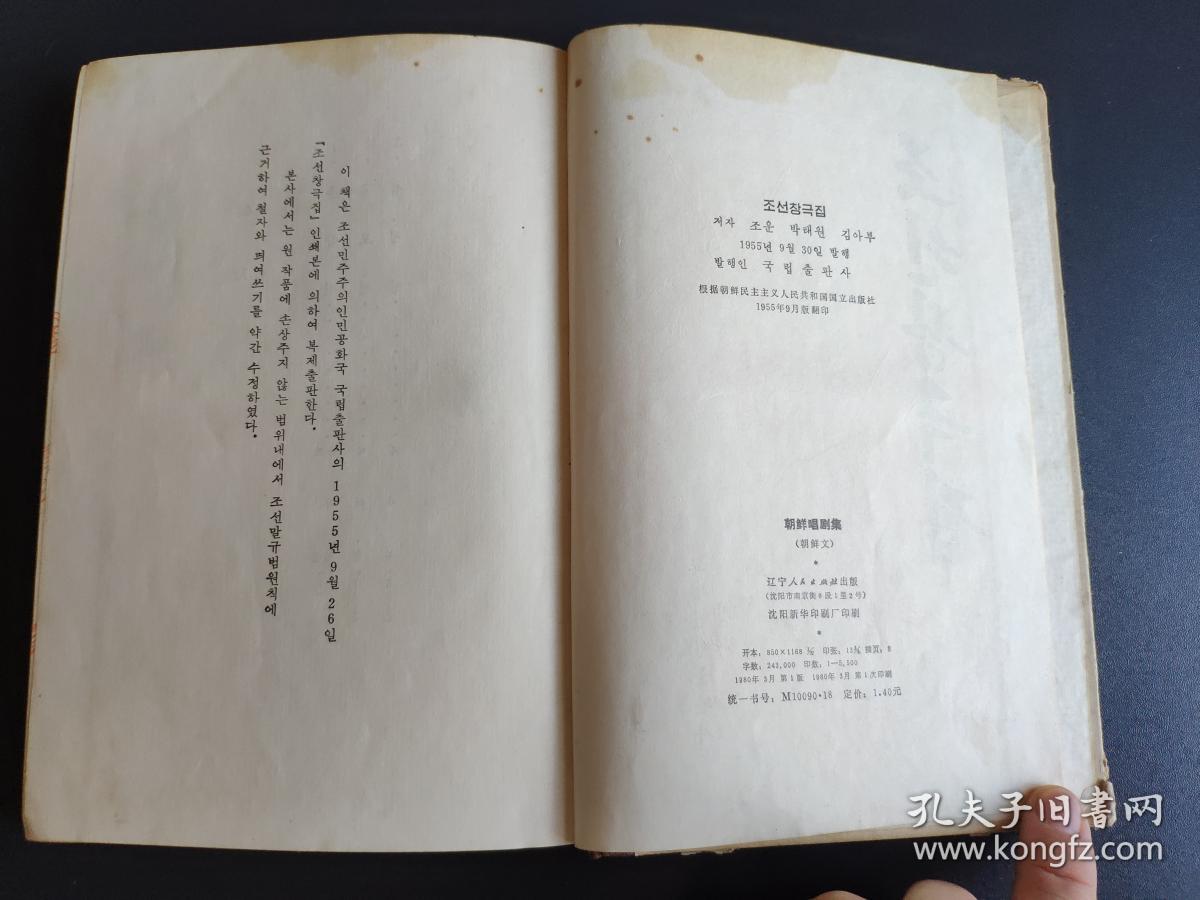 이 책은 조선민주주의인민공화국 국립출판사의 1955년 9월 26일
『조선창극집』 인쇄본에 의하여 복제출판한다.
본사에서는 원 작품에 손상주지 않는 범위내에서 조선말규범원칙에
근거하여 철자와 띄여쓰기를 약간 수정하였다.
조선창극집
저자 조운 박태원 김아부
1955년 9월 30일 발행
발행인 국립출판사
根据朝鲜民主主义人民共和国国立出版社
1955年9月版翻印
朝鲜唱剧集
(朝鲜文)
*
辽宁人民出版社出版
(沈阳市南京街6段1里2号)
沈阳新华印刷厂印刷
*
开本：850×1168 1/32 印张：插页：8
字数：243,000 印数：1—5,500
1980年3月 第1版 1980年3月 第1次印刷
统一书号：M10090·18 定价：1.40元
孔夫子旧書网
www.kongfz.com